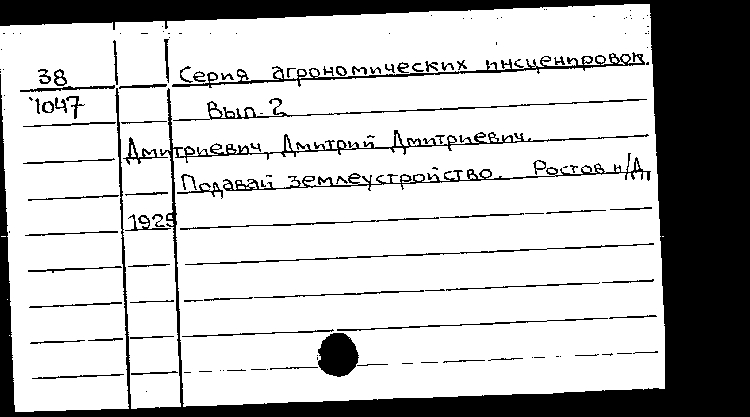 38 Серия агрономических инсценировок.
1047 Вып. 2
Дмитриевич, Дмитрий Дмитриевич.
Подавай землеустройство. Ростов н/Д,
1925